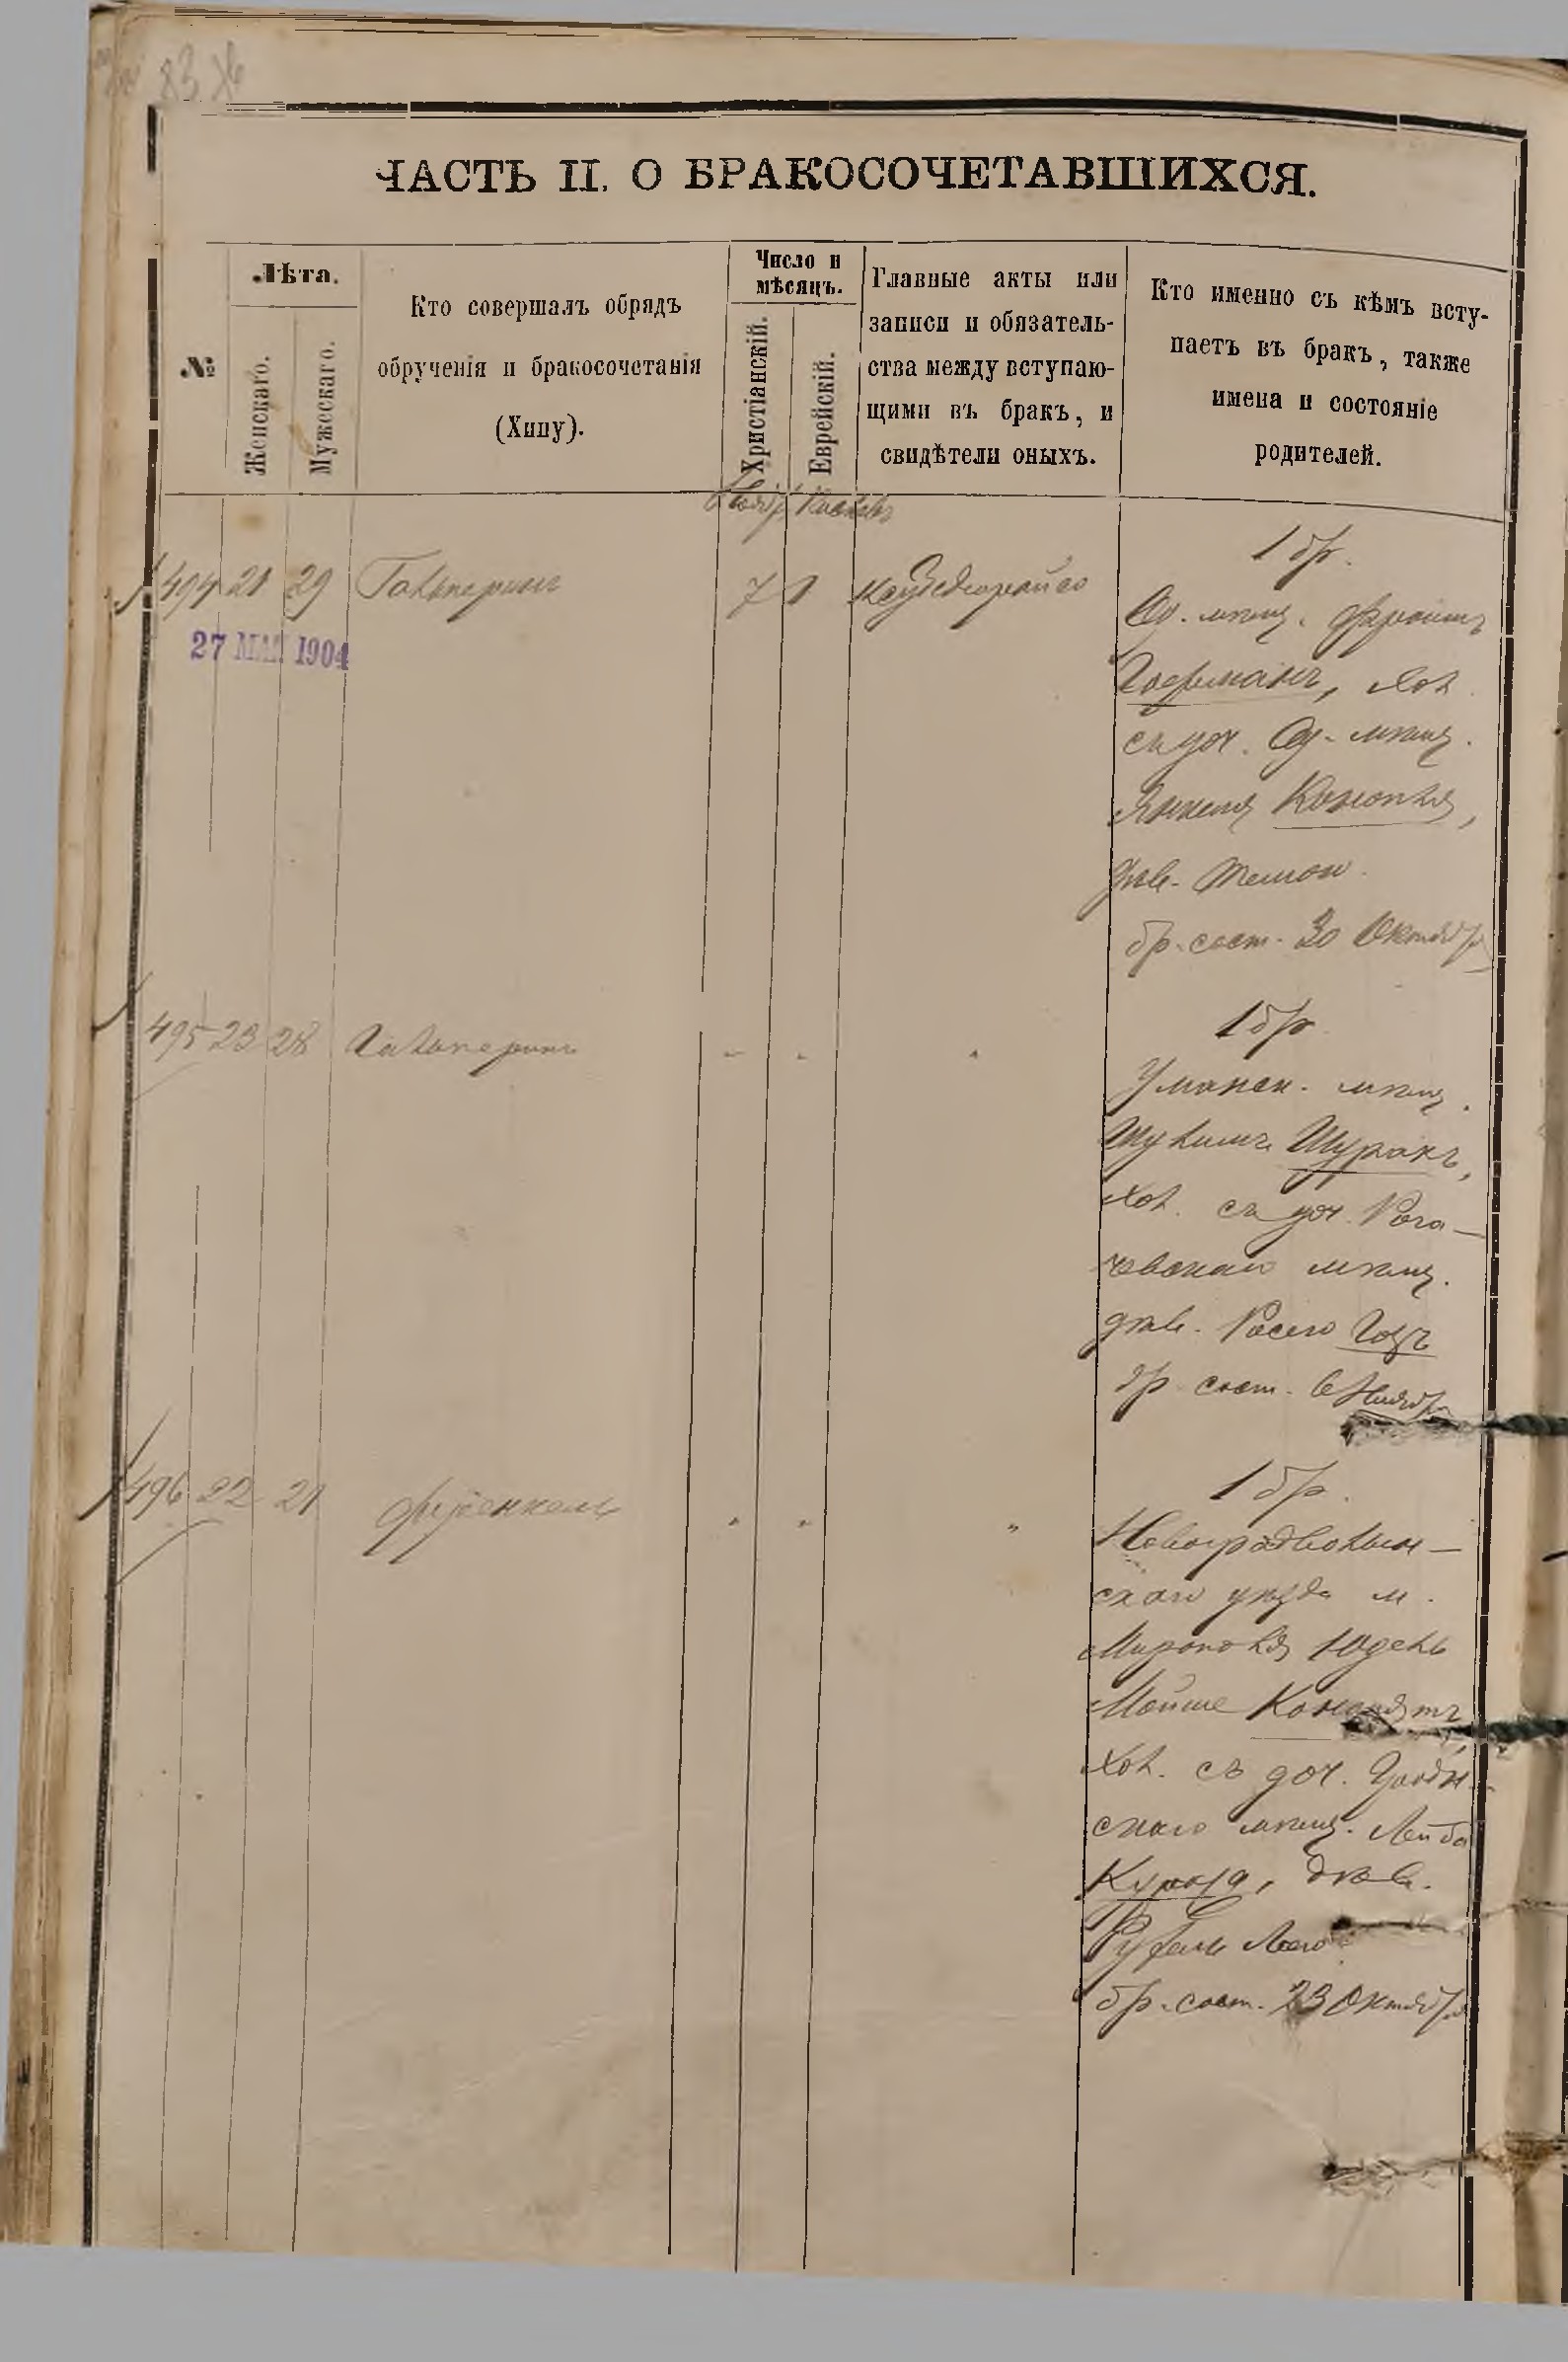 ЧАСТЬ II. О БРАКОСОЧЕТАВШИХСЯ.
№
Лѣта.
Женскаго.
Мужескаго.
Кто совершалъ обрядъ
обрученія и бракосочетанія
(Хипу).
Число и
мѣсяцъ.
Христіанскій.
Еврейскій.
Главные акты или
записи и обязатель-
ства между вступаю-
щими въ бракъ, и
свидѣтели оныхъ.
Кто именно съ кѣмъ всту-
паетъ въ бракъ, также
имена и состояніе
родителей.
Ноябр Кислевъ
494 21 29 Гальперинъ 7 1
27 МАЯ 1904
1 бр.
Од. мѣщ. Фроимъ
Гофманъ, хол.
съ доч. Од. мѣщ.
Янкеля Конопля,
дѣв.
бр. сост. 30 Октября
495 23 28 Гальперинъ
1 бр.
Уманск. мѣщ.
Шулимъ Шуракъ,
хол. съ доч. Рога-
чевскаго мѣщ.
дѣв. Росею
бр. сост. 6 Ноября
496 22 21 Френкель "
1 бр.
Новоградволын-
скаго уѣзда м.
Мирополя Юдель
Мойше
хол. съ доч. Гродн-
скаго мѣщ. Лейба
дѣв.
бр. сост. 23 Октября